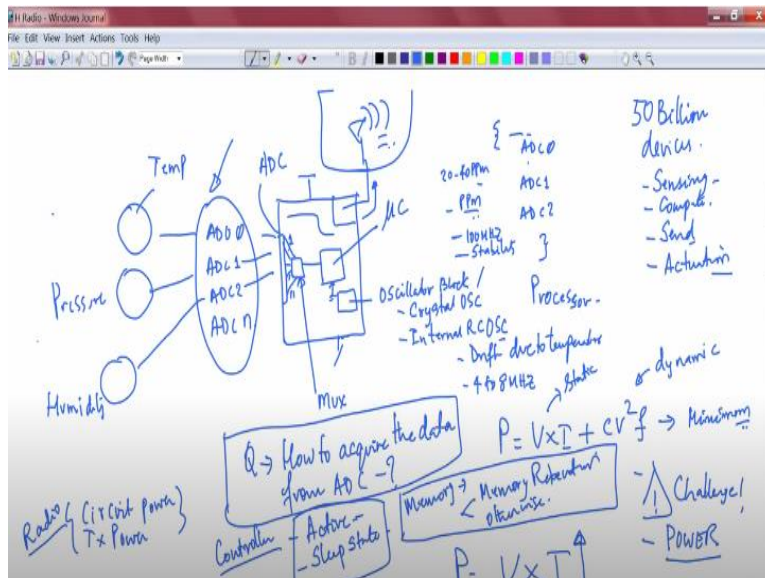 H Radio - Windows Journal
File Edit View Insert Actions Tools Help
Page Width
Temp
Pressure
Humidity
ADC 0
ADC 1
ADC 2
ADC n
ADC
Mux
μC
Oscillator Block /
- Crystal OSC
- Internal RC OSC
- Drift due to temperature
- 4 to 8 MHz
{ -
ADC0
ADC1
ADC2
}
20-40 ppm
- PPM
- 100MHz
- Stability
Processor -
50 Billion
devices.
- Sensing -
- Compute.
- Send
- Actuation
Static
or dynamic
P = V x I + CV²f → Minimum
Q → How to acquire the data
from ADC - ?
Memory → Memory Retention
< otherwise.
- Challenge!
- POWER
Radio { Circuit power
Tx Power }
Controller
- Active -
- Sleep State
P = V x I